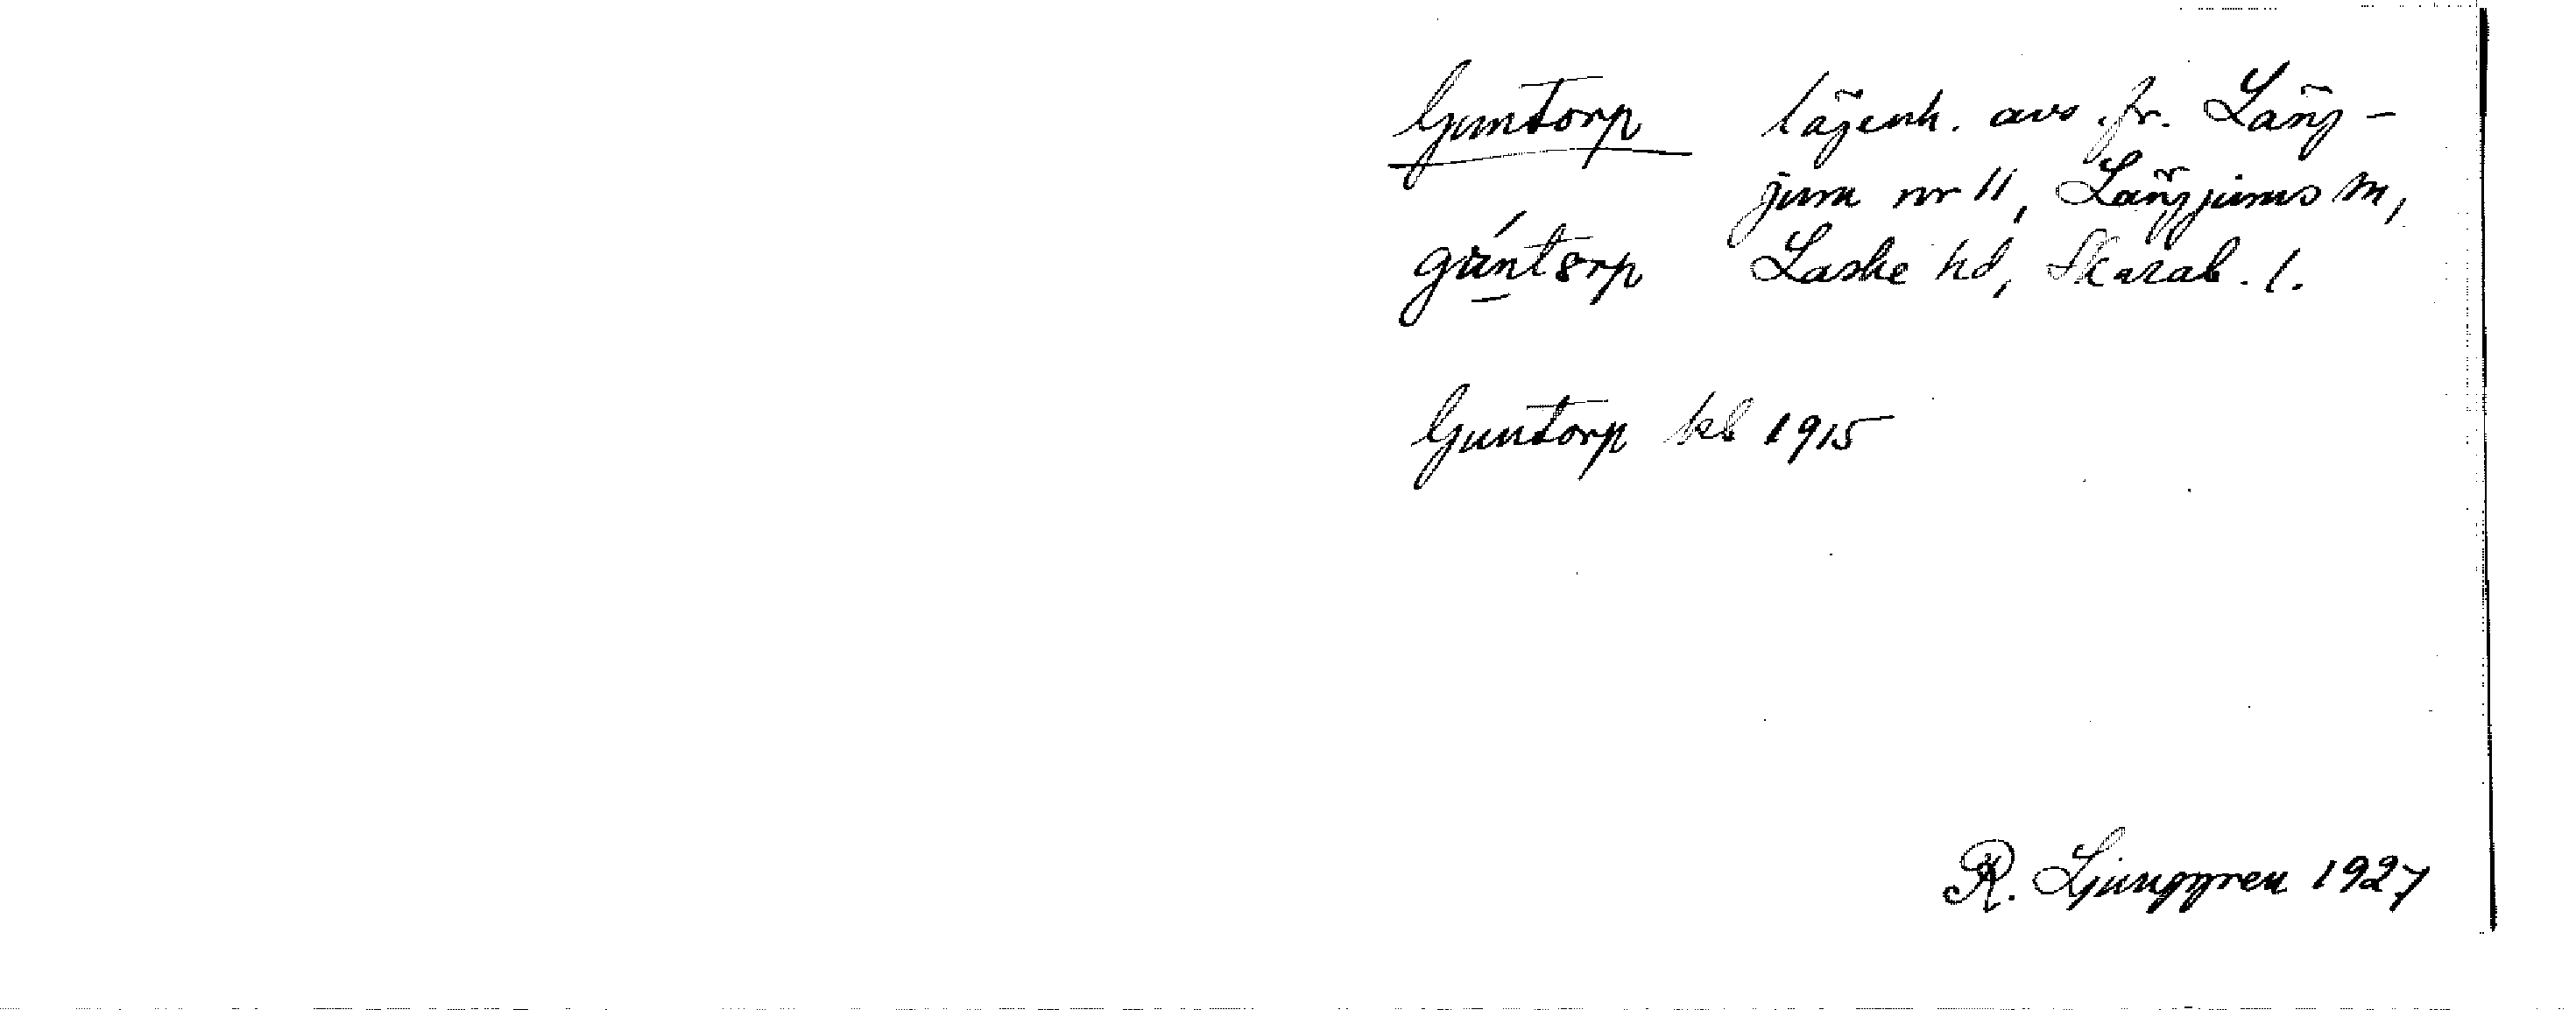 Guntorp lägenh. avs. fr. Läng-
jum nr 11, Längjums sn,
gúntorp Laske hd, Skarab. l.
Guntorp kb 1915
R. Ljunggren 1927